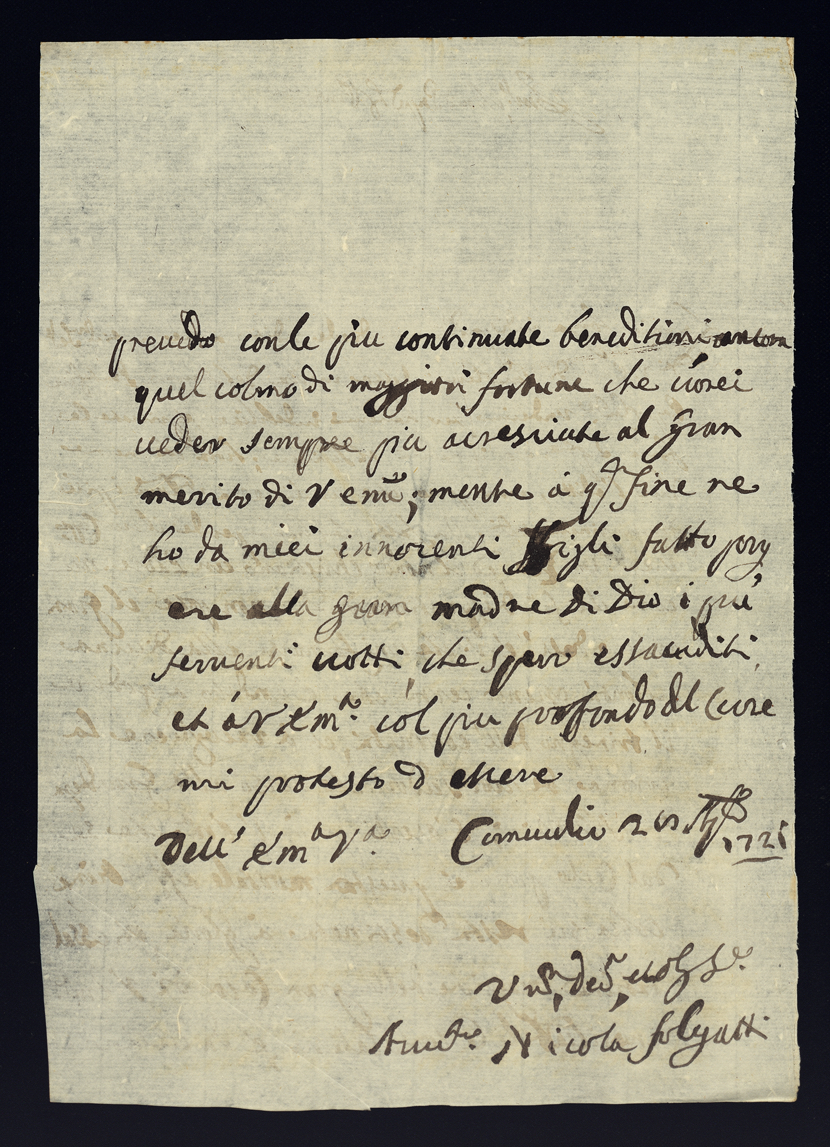 prevedo con le piu continuate beneditioni ancora
quel colmo di maggiori fortune che vorei
veder sempre piu acresciute al gran
merito di V Emã; mentre à q.to fine ne
ho da miei innocenti figli fatto porg
ere alla gran madre di Dio i più
ferventi votti, che spero essauditi,
et à V Emã. còl piu profondo del Cuore
mi protesto d essere
Dell' Em.a V.a
1721
Nicola